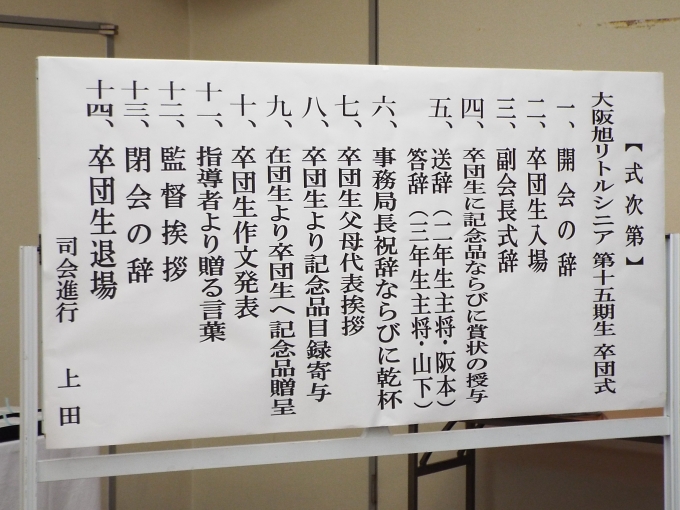 【式次第】
大阪旭リトルシニア 第十五期生 卒団式
一、開会の辞
二、卒団生入場
三、副会長式辞
四、卒団生に記念品ならびに賞状の授与
五、送辞（二年生主将・阪本）
答辞（三年生主将・山下）
六、事務局長祝辞ならびに乾杯
七、卒団生父母代表挨拶
八、卒団生より記念品目録寄与
九、在団生より卒団生へ記念品贈呈
十、卒団生作文発表
十一、指導者より贈る言葉
十二、監督挨拶
十三、閉会の辞
十四、卒団生退場
司会進行 上田